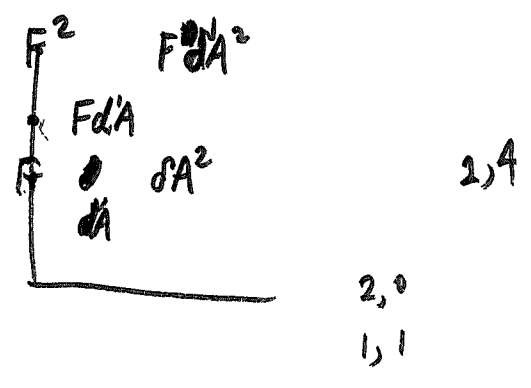 F² FdA²
FdA
F dA² 2,4
dA
2,0
1,1